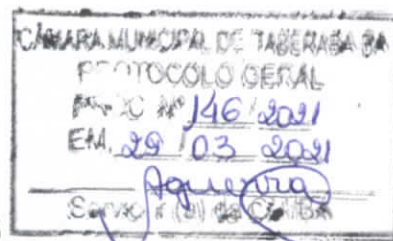 CÂMARA MUNICIPAL DE TABERABA BA
PROTOCOLO GERAL
PROC Nº 146/2021
EM, 29 / 03 2021
Aguerra
Servidor (a) da